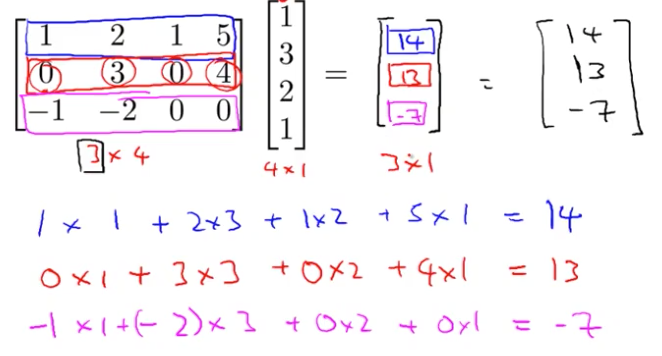 [1 2 1 5; 0 3 0 4; -1 -2 0 0] [1; 3; 2; 1] = [14; 13; -7] = [14; 13; -7]
3 × 4   4×1   3×1
1 × 1 + 2×3 + 1×2 + 5×1 = 14
0×1 + 3×3 + 0×2 + 4×1 = 13
-1×1+(-2)×3 + 0×2 + 0×1 = -7